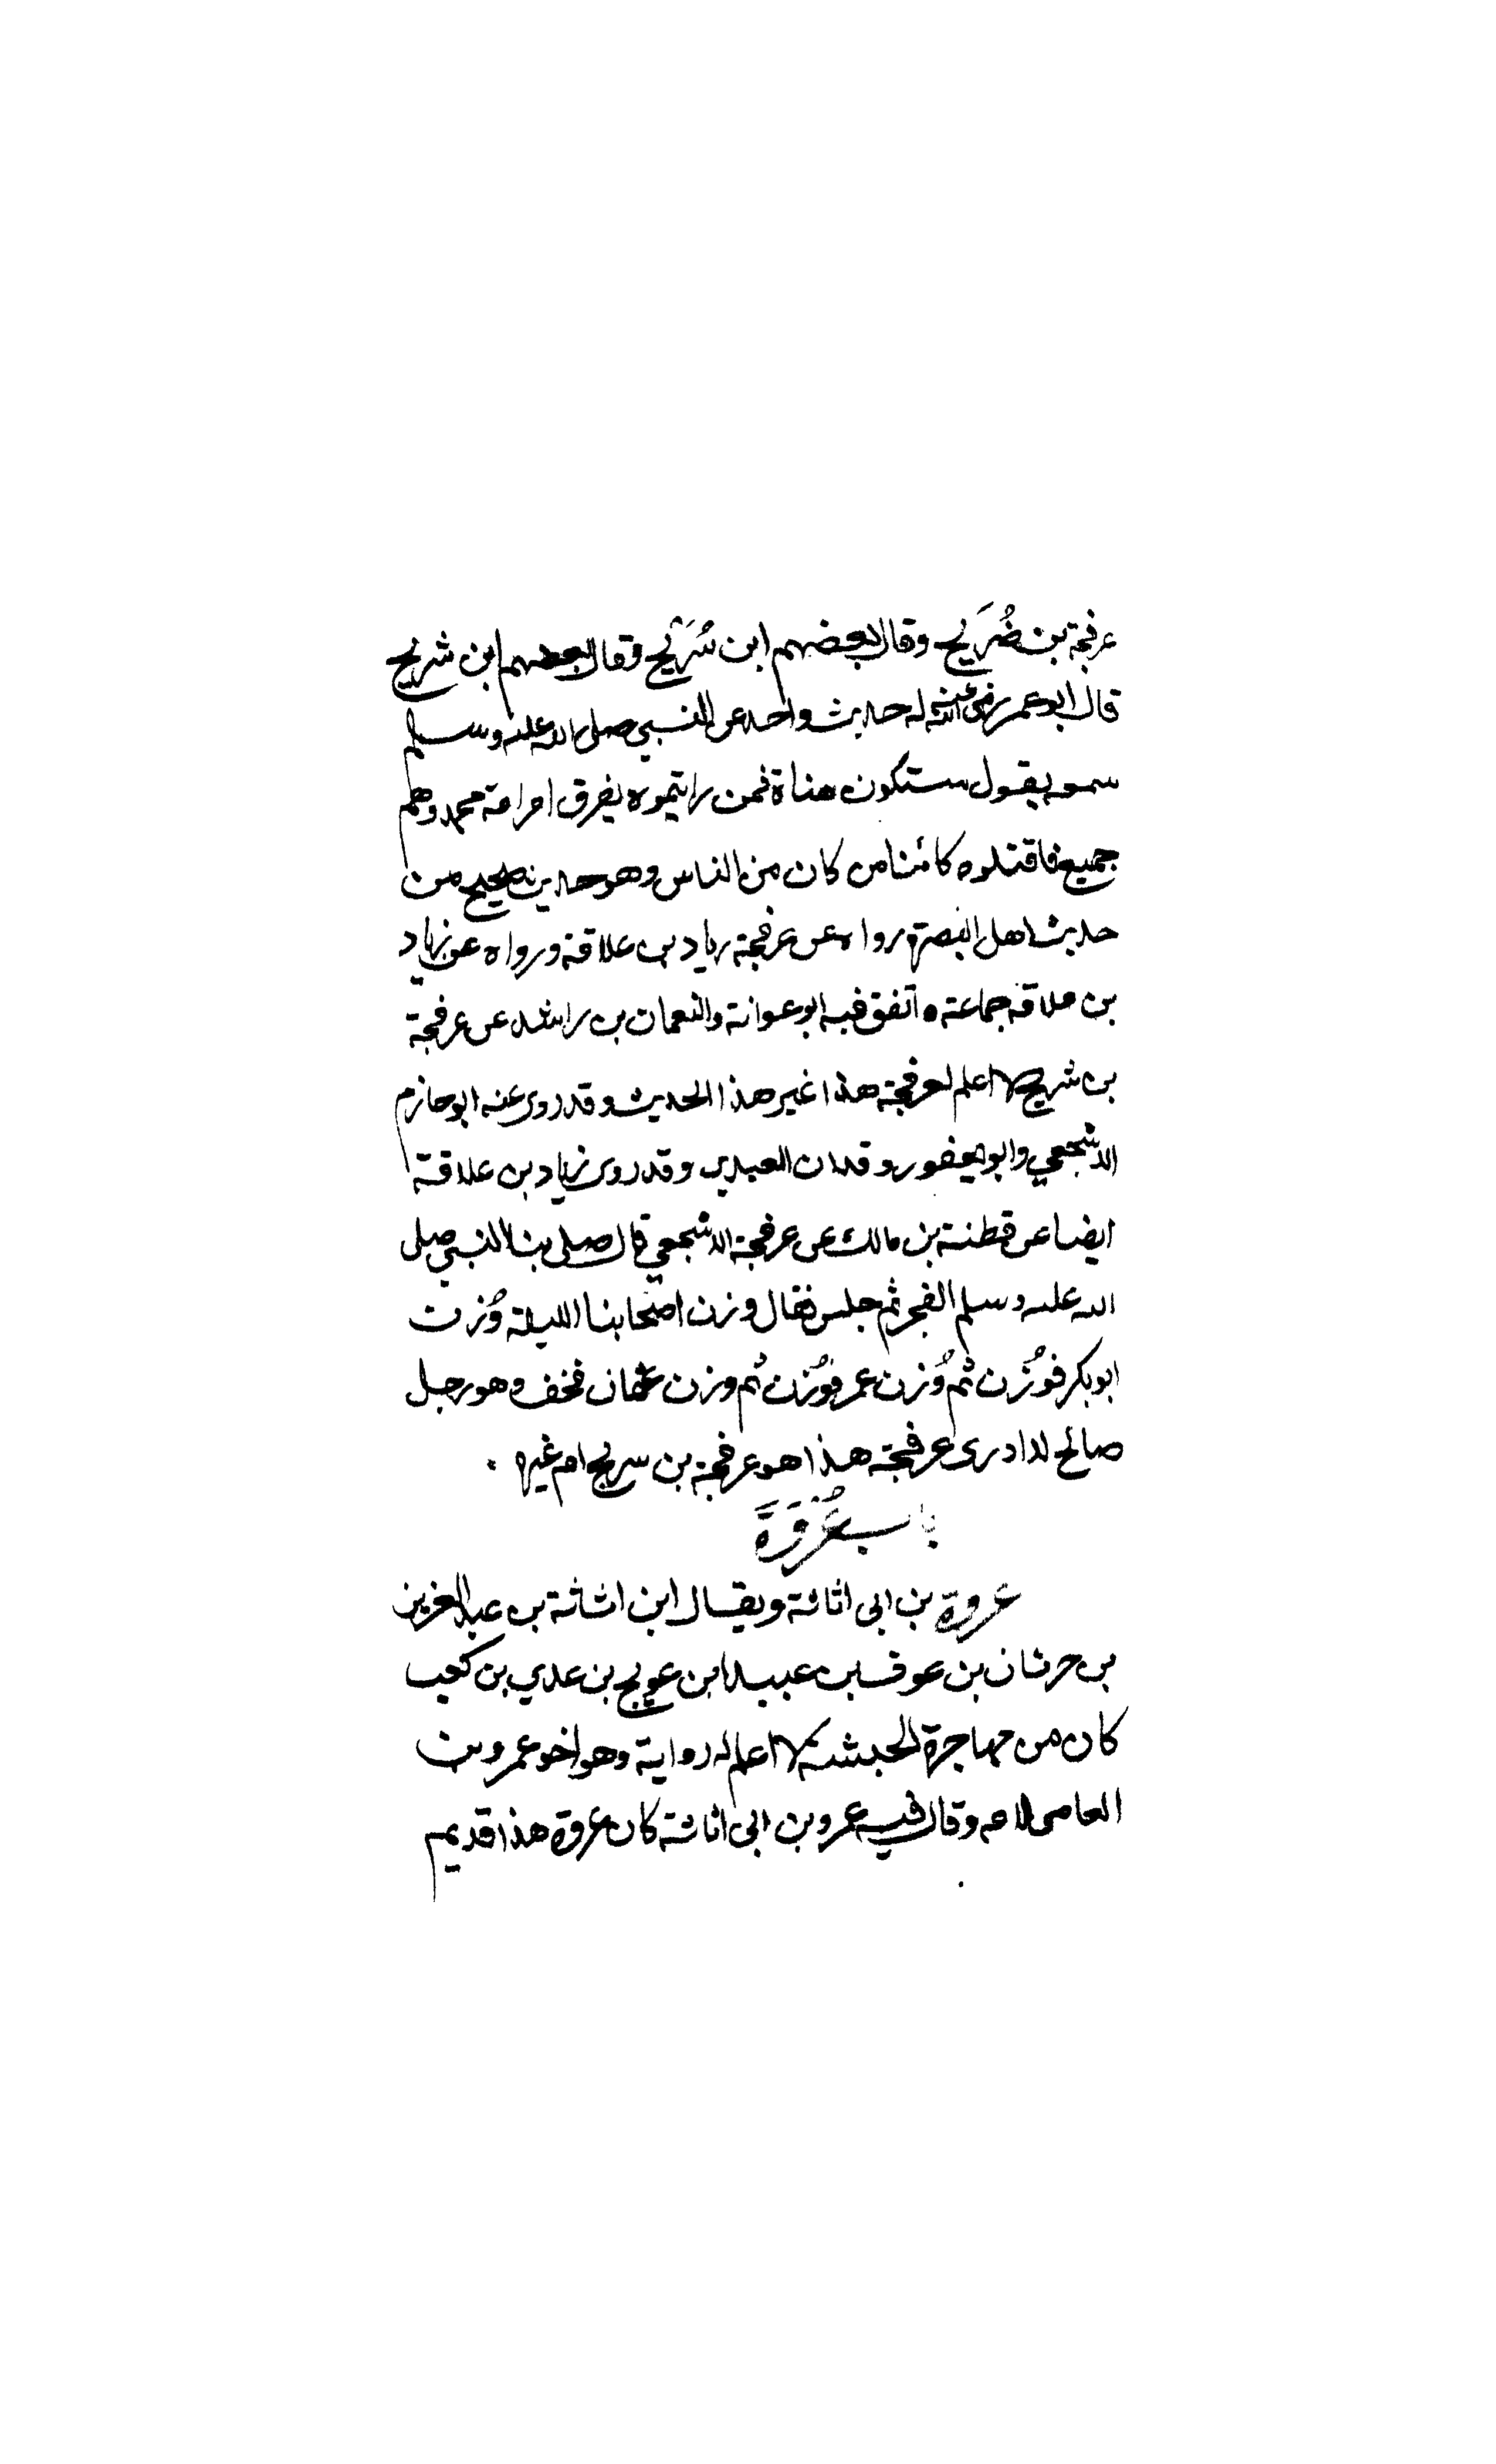 عرفجة بن ضُرَيح وقال بعضهم ابن شُرَيح وقال بعضهم ابن شريح
قال ابو عمر رضى الله عنه له حديث واحد عن النبي صلى الله عليه وسلم
سمعه يقول ستكون هناة فمن رايتموه يفرق امر امة محمد وهم
جميع فاقتلوه كائنا من كان من الناس وهو حديث صحيح من
حديث اهل البصرة رواه عن عرفجة زياد بن علاقة ورواه عن زياد
بن علاقة جماعة ه اتفق فيه ابو عوانة والنعمان بن راشد عن عرفجة
بن شريح لا اعلم لعرفجة هذا غير هذا الحديث وقد روى عنه ابو حازم
الاشجعي وابو يعفور وقدان العبدي وقد روى زياد بن علاقة
ايضا عن قطنة بن مالك عن عرفجة الاشجعي قال صلى بنا النبي صلى
الله عليه وسلم الفجر ثم جلس فقال وزن اصحابنا الليلة وُزن
ابو بكر فوُزن ثم وُزن عمر فوُزن ثم وزن عثمان فخف وهو رجل
صالح لا ادرى عرفجة هذا هو عرفجة بن سريح ام غيره
باب عُرْوَةَ
عروة بن ابى اثاثة ويقال ابن اثاثة بن عبد العزيز
بن حرثان بن عوف بن عبيد ابن عويج بن عدي بن كعب
كان من مهاجرة الحبشة لا اعلم له رواية وهو اخو عمرو بن
العاصى لامه وقال فيه عمرو بن ابى اثاثة كان عروة هذا قديم